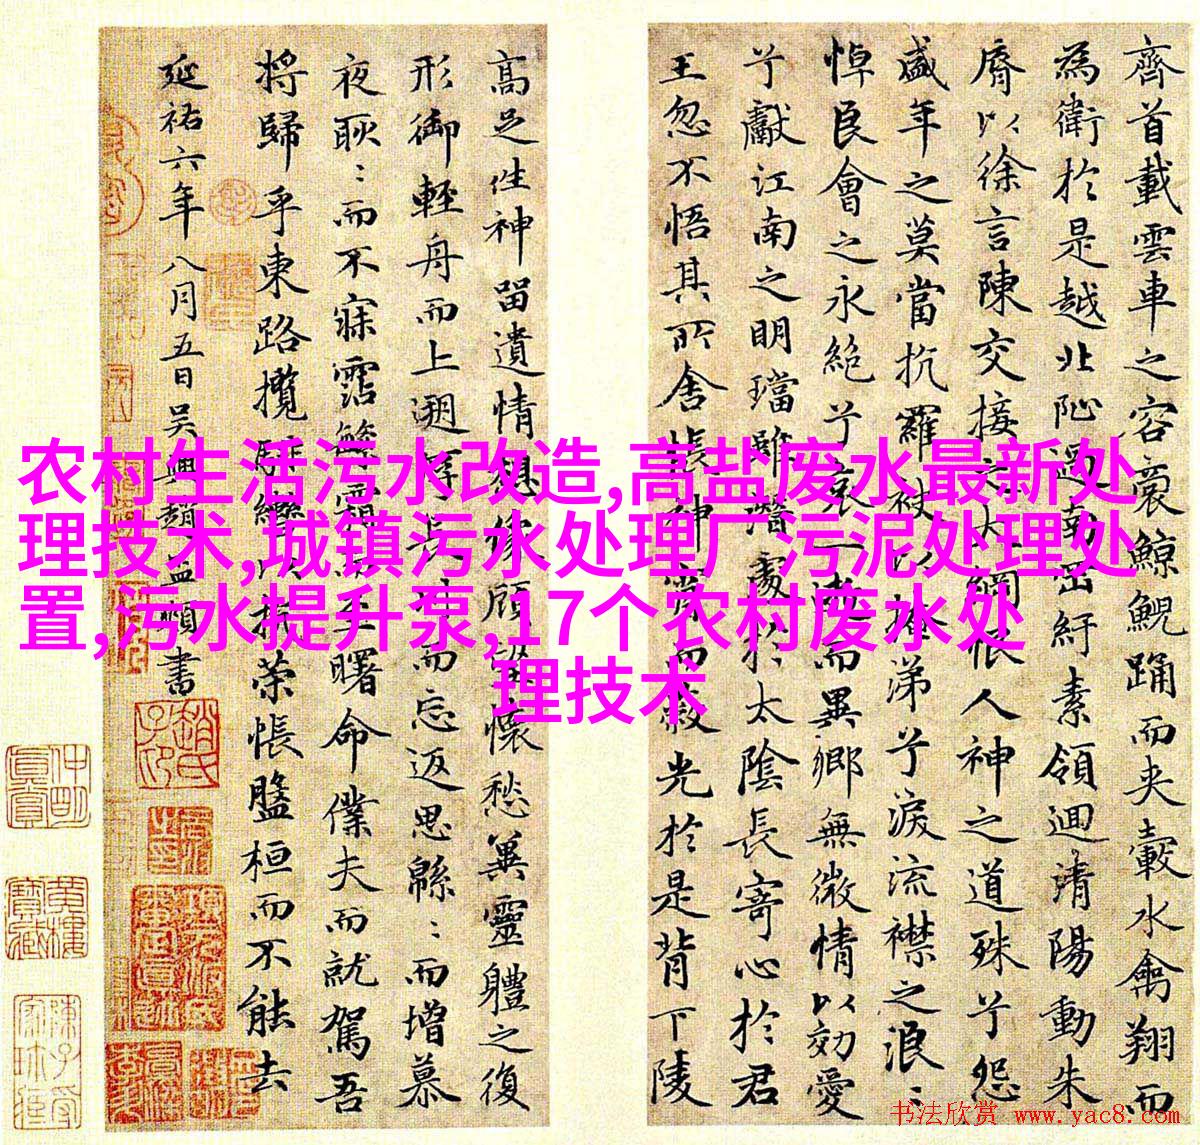 齊首載雲車之容裔鯨鯢踊而夾轂水禽翔而
為衛於是越北沚過南岡紆素領迴清陽動朱
脣以徐言陳交接之大綱恨人神之道殊兮怨
盛年之莫當抗羅袂以掩涕兮淚流襟之浪〻
悼良會之永絕兮哀一逝而異鄉無微情以効愛
兮獻江南之明璫雖潛處於太陰長寄心於君
王忽不悟其所舍悵神宵而蔽光於是背下陵
高足往神留遺情想像顧望懷愁冀靈軆之復
形御輕舟而上遡浮長川而忘返思緜〻而增慕
夜耿〻而不寐霑繁霜而至曙命僕夫而就駕吾
將歸乎東路攬騑轡以抗策悵盤桓而不能去
延祐六年八月五日吳興趙孟頫書
农村生活污水改造,高盐废水最新处
理技术,城镇污水处理厂污泥处理处
置,污水提升泵,17个农村废水处
理技术
书法欣赏 www.yac8.com